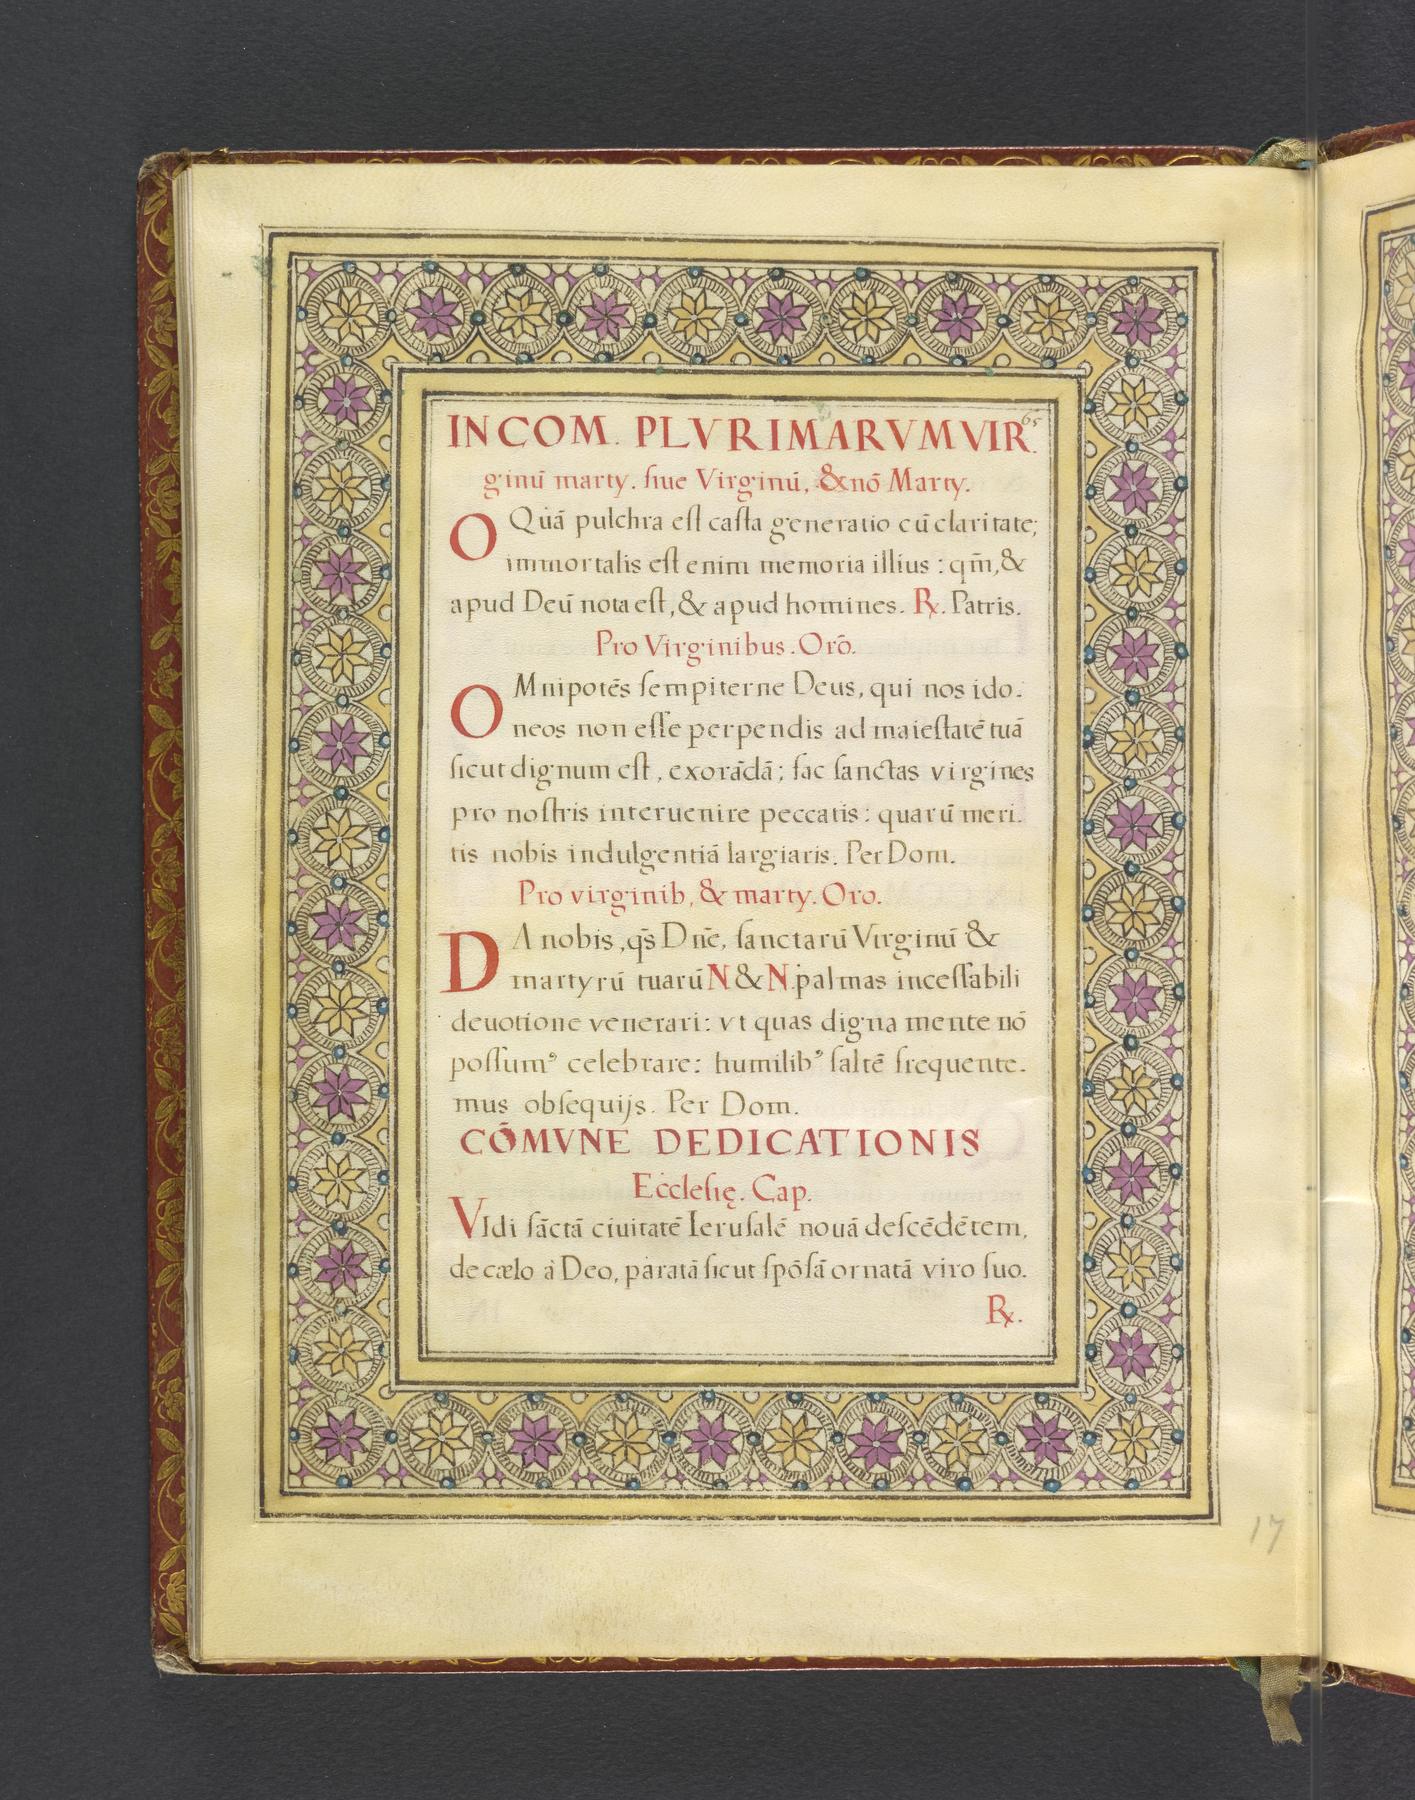 65
IN COM. PLVRIMARVM VIR.
ginũ marty. siue Virginũ, & nõ Marty.
O Quã pulchra est casta generatio cũ claritate;
immortalis est enim memoria illius : qm̃, &
apud Deũ nota est, & apud homines. ℞. Patris.
Pro Virginibus. Orõ.
OMnipotẽs sempiterne Deus, qui nos ido.
neos non esse perpendis ad maiestatẽ tuã
sicut dignum est, exorãdã; fac sanctas virgines
pro nostris interuenire peccatis: quarũ meri.
tis nobis indulgentiã largiaris. Per Dom.
Pro virginib, & marty. Oro.
DA nobis, q̃s Dñe, sanctarũ Virginũ &
martyrũ tuarũ N & N. palmas incessabili
deuotione venerari: vt quas digna mente nõ
possumꝰ celebrare: humilibꝰ saltẽ frequente.
mus obsequijs. Per Dom.
CÕMVNE DEDICATIONIS
Ecclesię. Cap.
VIdi sãctã ciuitatẽ Ierusalẽ nouã descẽdẽtem,
de cælo à Deo, paratã sicut spõsã ornatã viro suo.
℞.
17